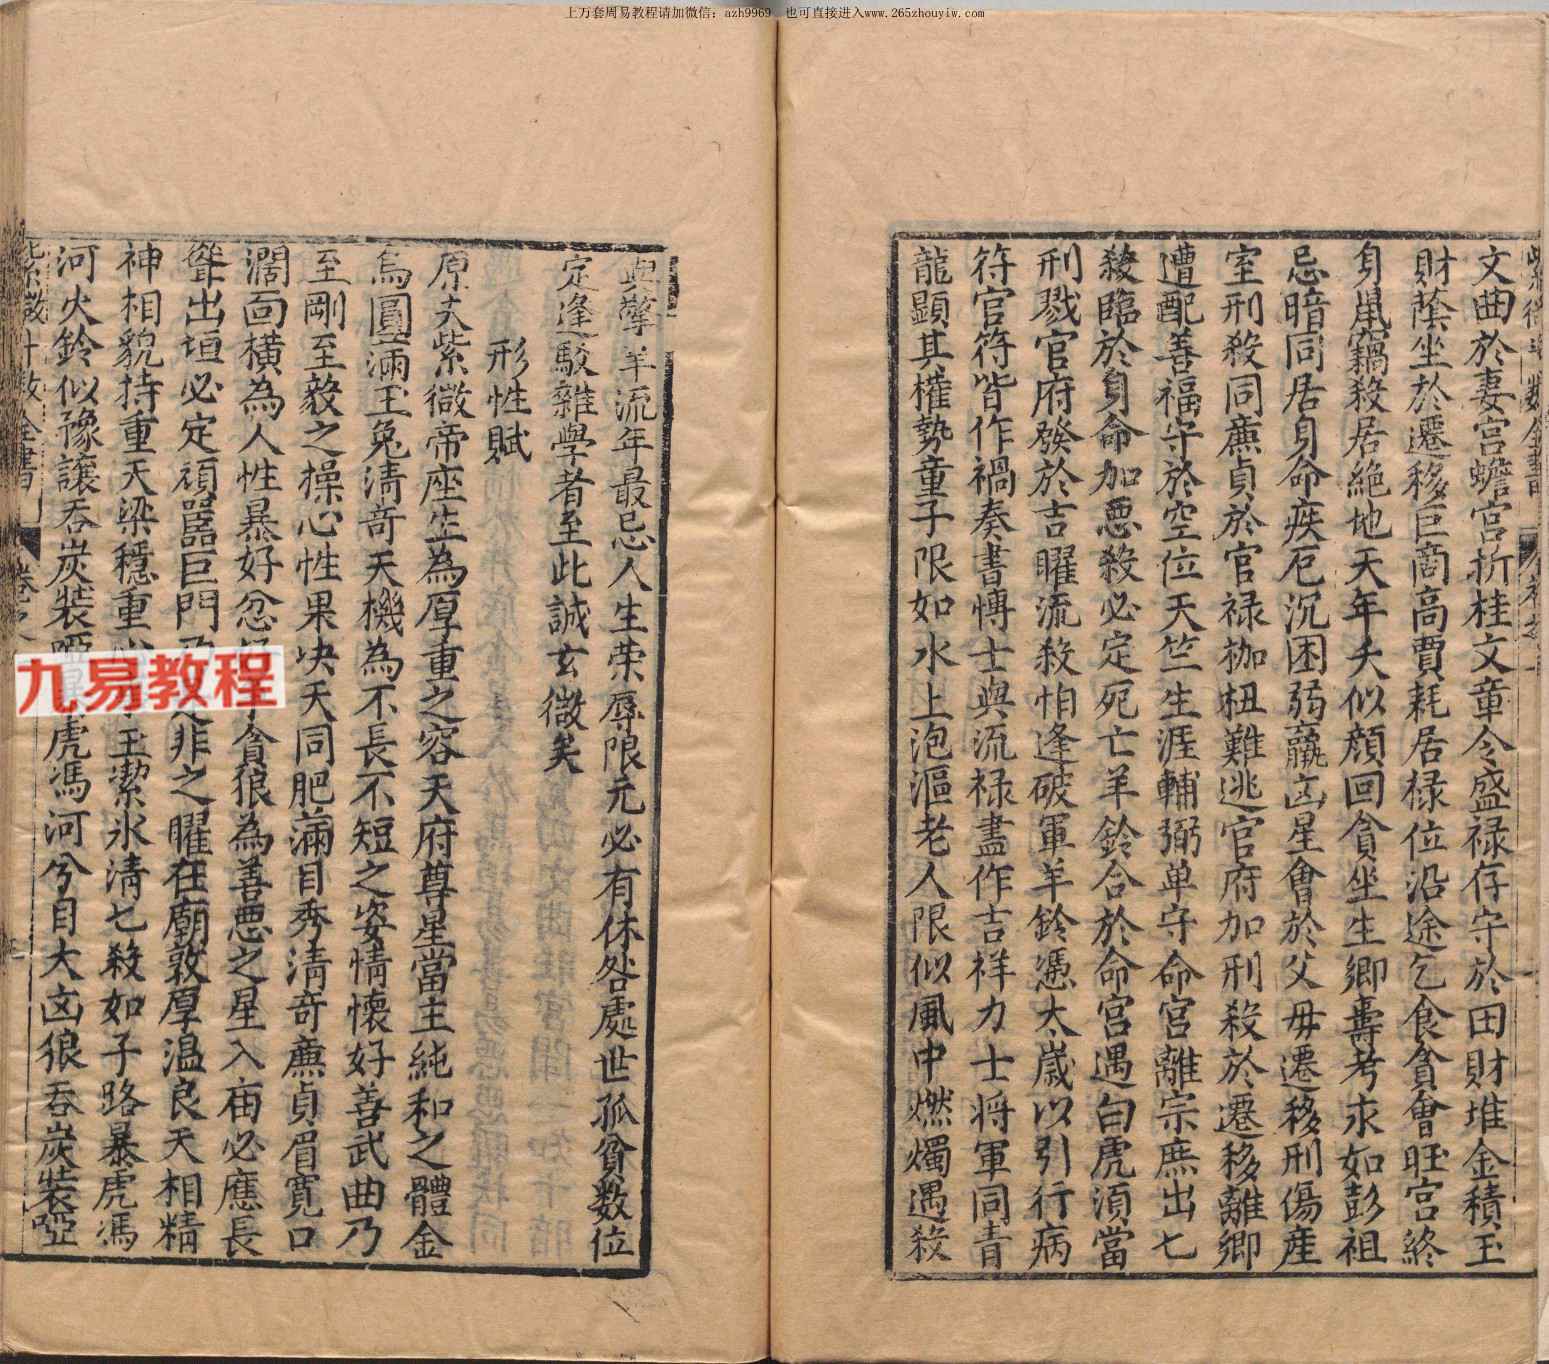 上万套周易教程请加微信：azh9969 也可直接进入www.265zhouyiw.com
文曲於妻宮蟾宮折桂文章令盛禄存守於田財堆金積玉
財蔭坐於遷移巨商高賈耗居禄位沿途乞食貪會旺宮終
身鼠竊殺居絶地天年夭似顔回貪坐生鄉壽考永如彭祖
忌暗同居身命疾厄沉困弱羸凶星會於父毋遷移刑傷産
室刑殺同亷貞於官禄枷杻難逃官府加刑殺於遷移離鄉
遭配善福守於空位天竺生涯輔弼单守命宮離宗庶出七
殺臨於身命加悪殺必定死亡羊鈴合於命宮遇白虎湏當
刑戮官府發於吉曜流殺怕逢破軍羊鈴憑太歲以引行病
符官符皆作禍奏書博士與流禄盡作吉祥力士将軍同青
龍顯其權勢童子限如水上泡漚老人限似風中燃燭遇殺
與擎羊流年最忌人生荣辱限元必有休咎處世孤貧数位
定逢駁雜學者至此誠玄微矣
形性賦
原夫紫微帝座生為厚重之容天府尊星當主純和之體金
烏圓滿玉兔清竒天機為不長不短之姿情懷好善武曲乃
至剛至毅之操心性果决天同肥滿目秀清竒亷貞眉寛口
濶面横為人性暴好忿貪狼為善悪之星入庙必應長
聳出垣必定頑嚚巨門非之曜在廟敦厚温良天相精
神相貌持重天梁穩重玉潔氷清七殺如子路暴虎馮
河火鈴似豫讓吞炭装啞虎馮河兮目大凶狼吞炭装啞
九易教程